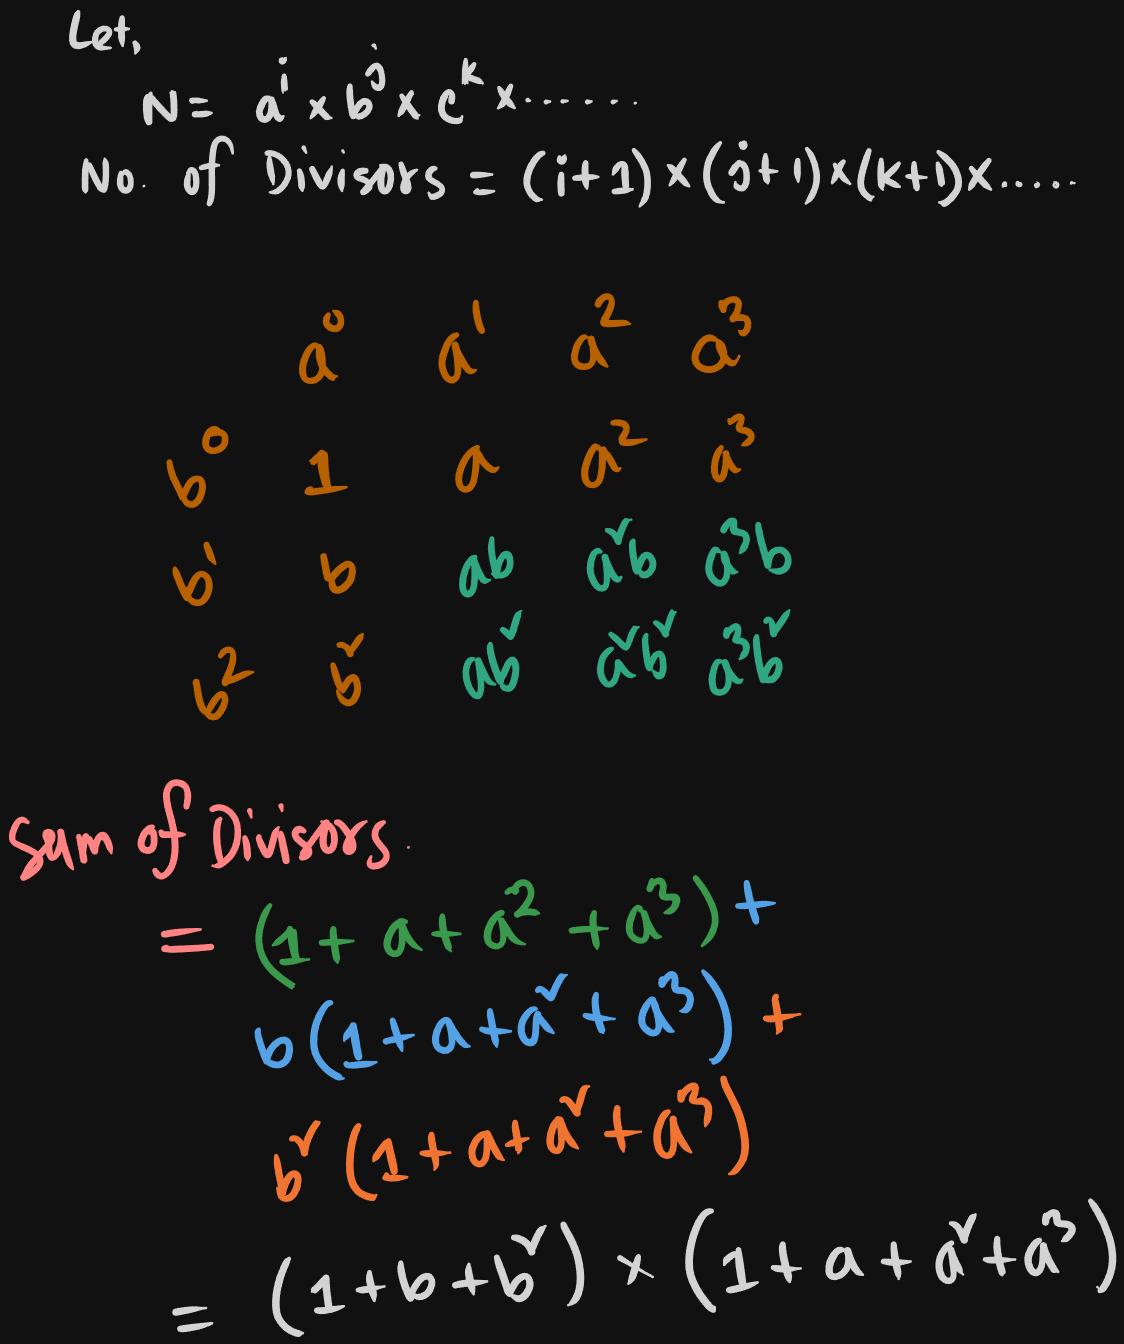 Let,
N = a^i × b^j × c^k × ......
No. of Divisors = (i+1) × (j+1) × (k+1) × .....
a^0 a^1 a^2 a^3
b^0 1 a a^2 a^3
b^1 b ab a²b a^3b
b^2 b² ab² a²b² a^3b²
Sum of Divisors.
= (1 + a + a^2 + a^3) +
b(1 + a + a² + a^3) +
b² (1 + a + a² + a^3)
= (1 + b + b²) × (1 + a + a² + a^3)